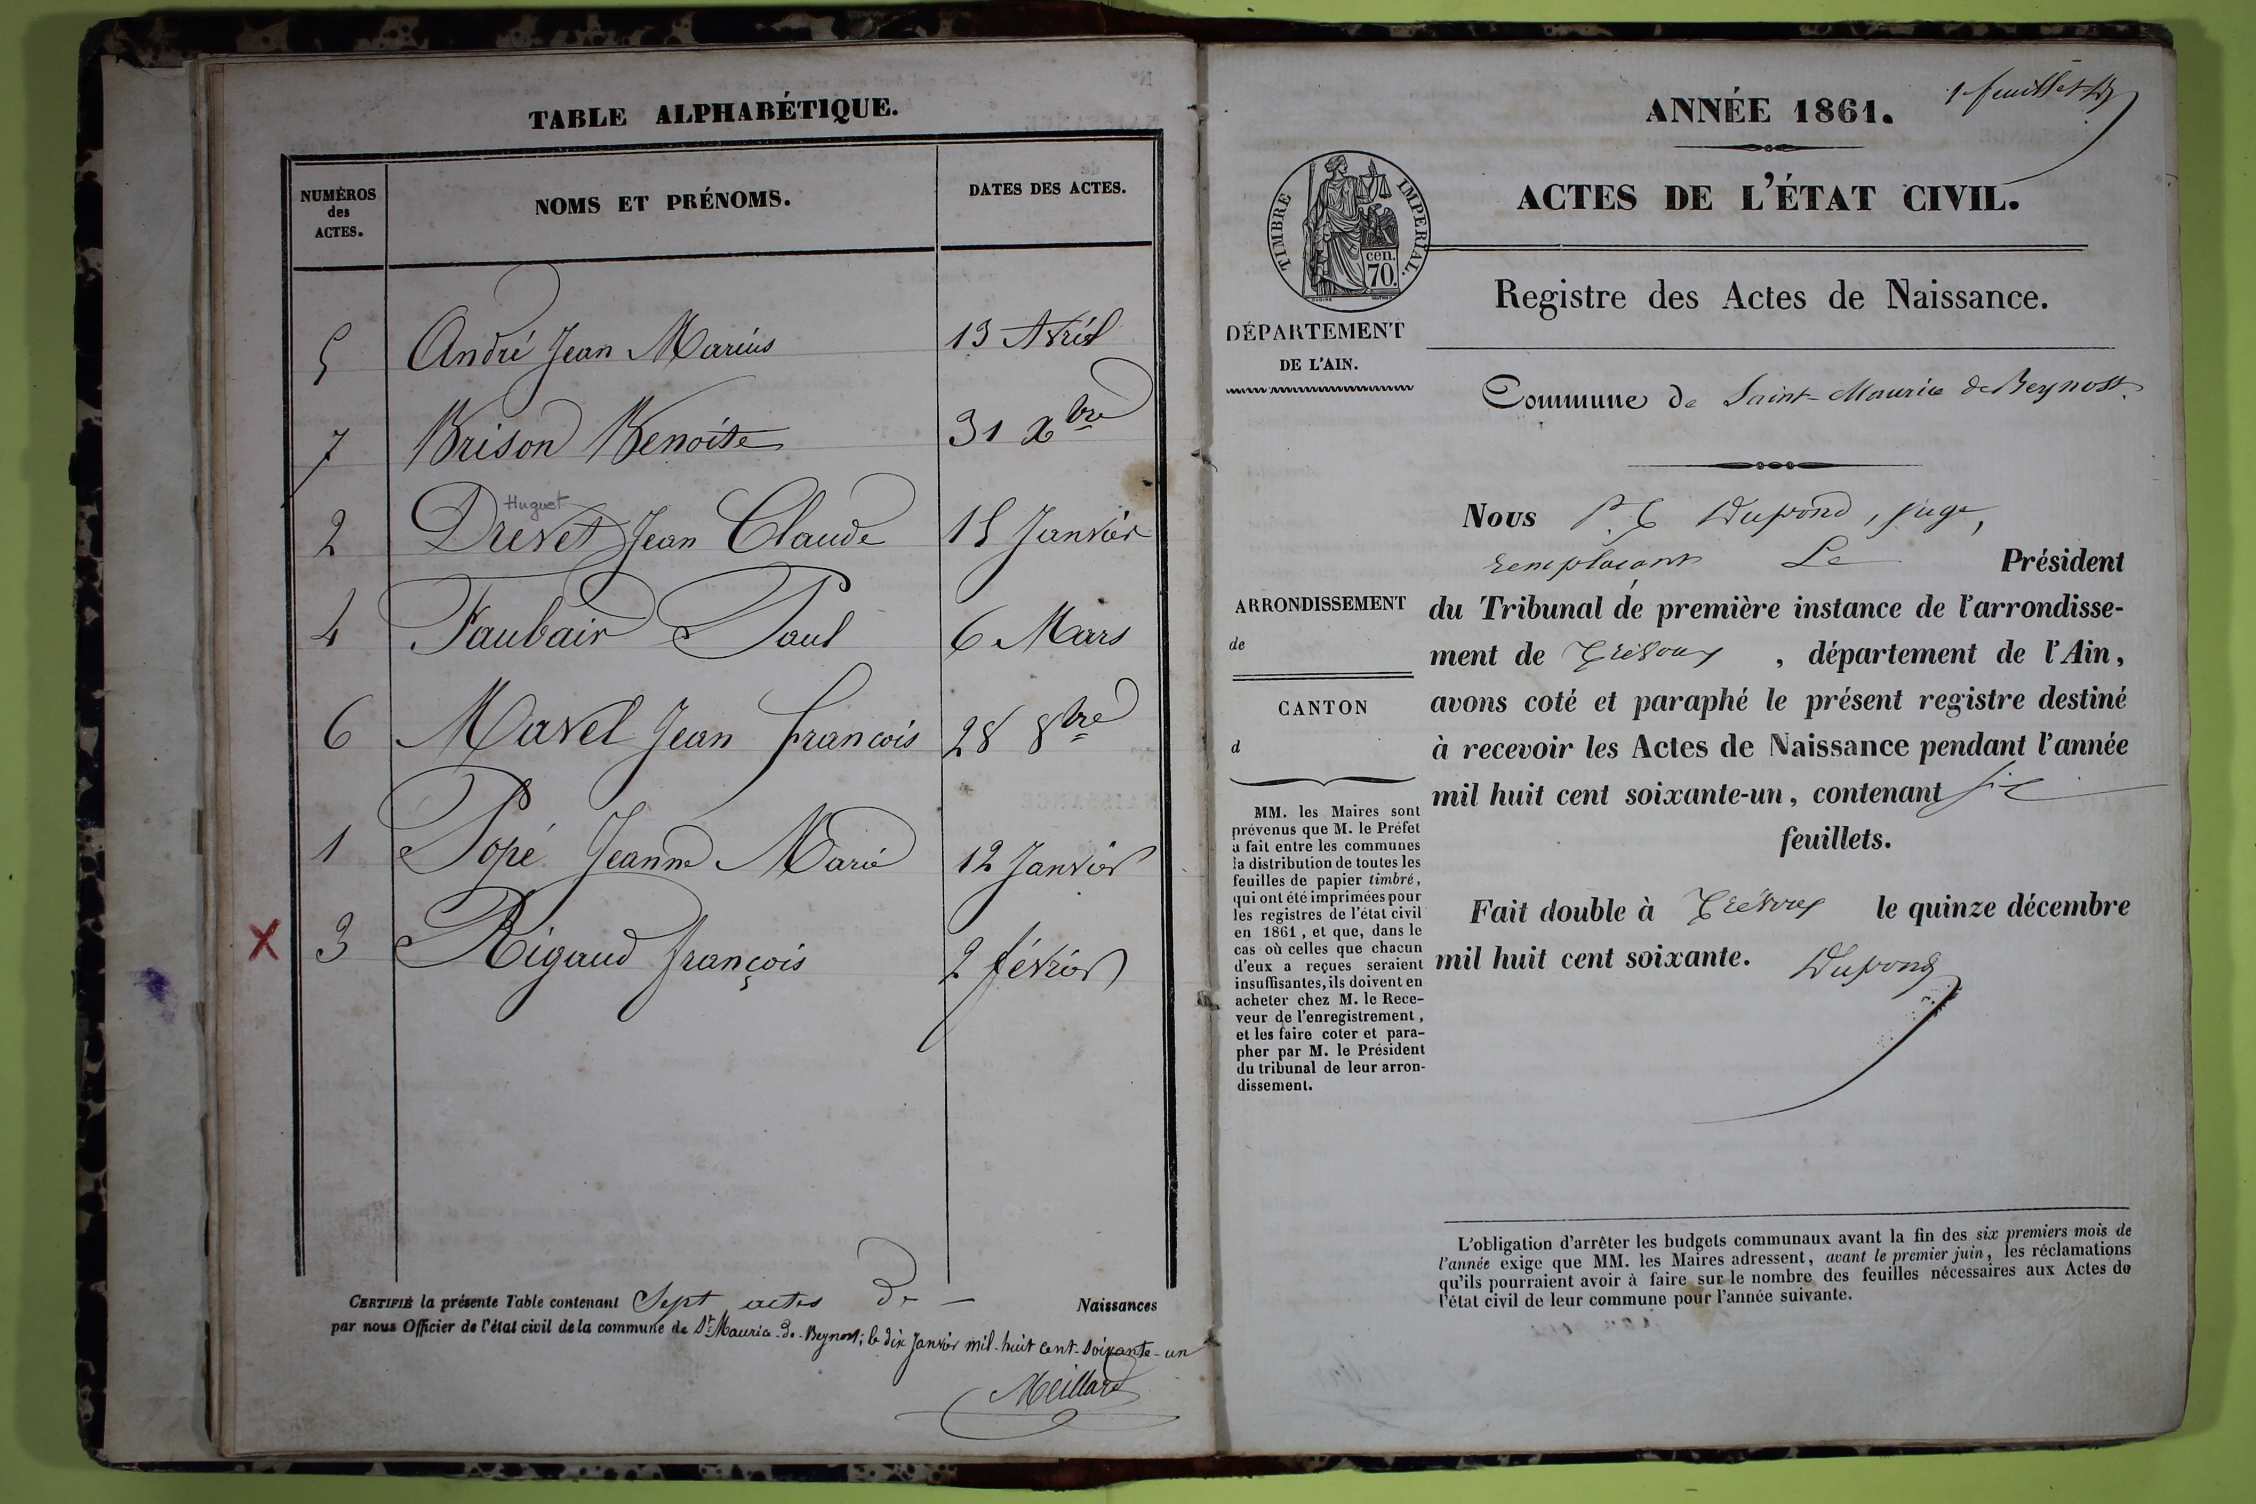 TABLE ALPHABÉTIQUE.
NUMÉROS
des
ACTES.
NOMS ET PRÉNOMS.
DATES DES ACTES.
5 André Jean Marius 13 Avril
7 Brison Benoite 31 Xbre
Huguet
2 Drevet Jean Claude 15 Janvier
4 Faubair Paul 6 Mars
6 Mavel Jean francois 28 8bre
1 Popé Jeanne Marie 12 Janvier
X 3 Rigaud françois 2 février
CERTIFIÉ la présente Table contenant Sept actes de — Naissances
par nous Officier de l'état civil de la commune de St Maurice-de-Beynost; le dix Janvier mil-huit cent-soixante-un
Meillard
1er feuillet
ANNÉE 1861.
ACTES DE L'ÉTAT CIVIL.
TIMBRE IMPERIAL.
cen.
70.
Registre des Actes de Naissance.
DÉPARTEMENT
DE L'AIN.
Commune de Saint-Maurice de Beynost.
Nous Dupond, juge,
remplaçant Le Président
du Tribunal de première instance de l'arrondisse-
ment de Trévoux, département de l'Ain,
avons coté et paraphé le présent registre destiné
à recevoir les Actes de Naissance pendant l'année
mil huit cent soixante-un, contenant six
feuillets.
Fait double à Trévoux le quinze décembre
mil huit cent soixante.
Dupond
ARRONDISSEMENT
de
CANTON
d
MM. les Maires sont
prévenus que M. le Préfet
a fait entre les communes
la distribution de toutes les
feuilles de papier timbré,
qui ont été imprimées pour
les registres de l'état civil
en 1861, et que, dans le
cas où celles que chacun
d'eux a reçues seraient
insuffisantes, ils doivent en
acheter chez M. le Rece-
veur de l'enregistrement,
et les faire coter et para-
pher par M. le Président
du tribunal de leur arron-
dissement.
L'obligation d'arrêter les budgets communaux avant la fin des six premiers mois de
l'année exige que MM. les Maires adressent, avant le premier juin, les réclamations
qu'ils pourraient avoir à faire sur le nombre des feuilles nécessaires aux Actes de
l'état civil de leur commune pour l'année suivante.